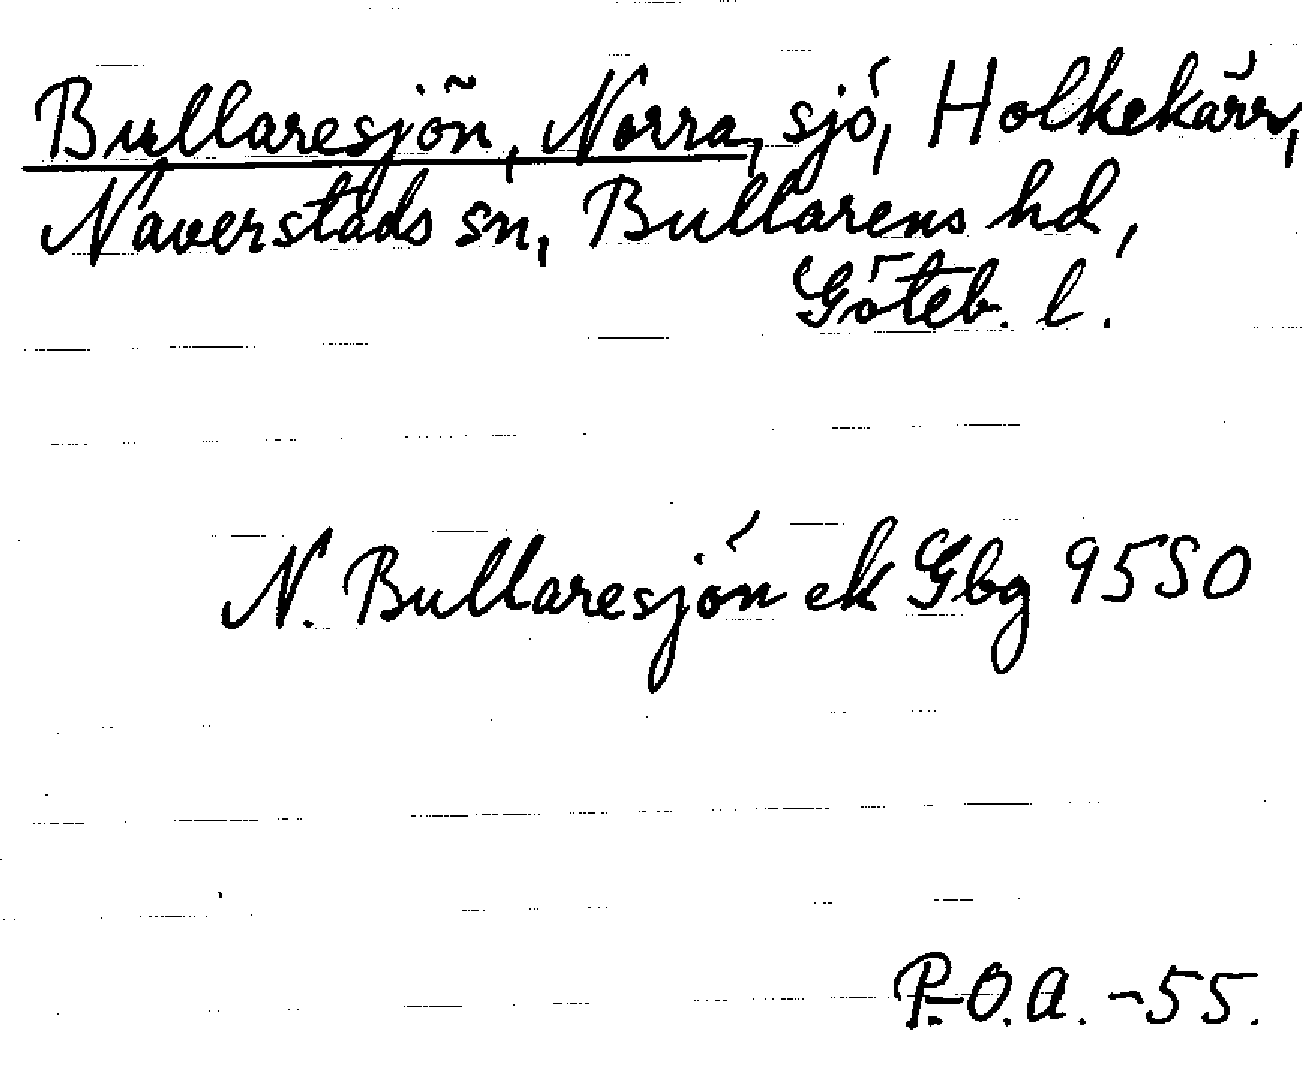 Bullaresjön, Norra, sjö, Holkekärr,
Naverstads sn, Bullarens hd,
Göteb. l.
N. Bullaresjön ek Gbg 9550
P.-O.A. -55.